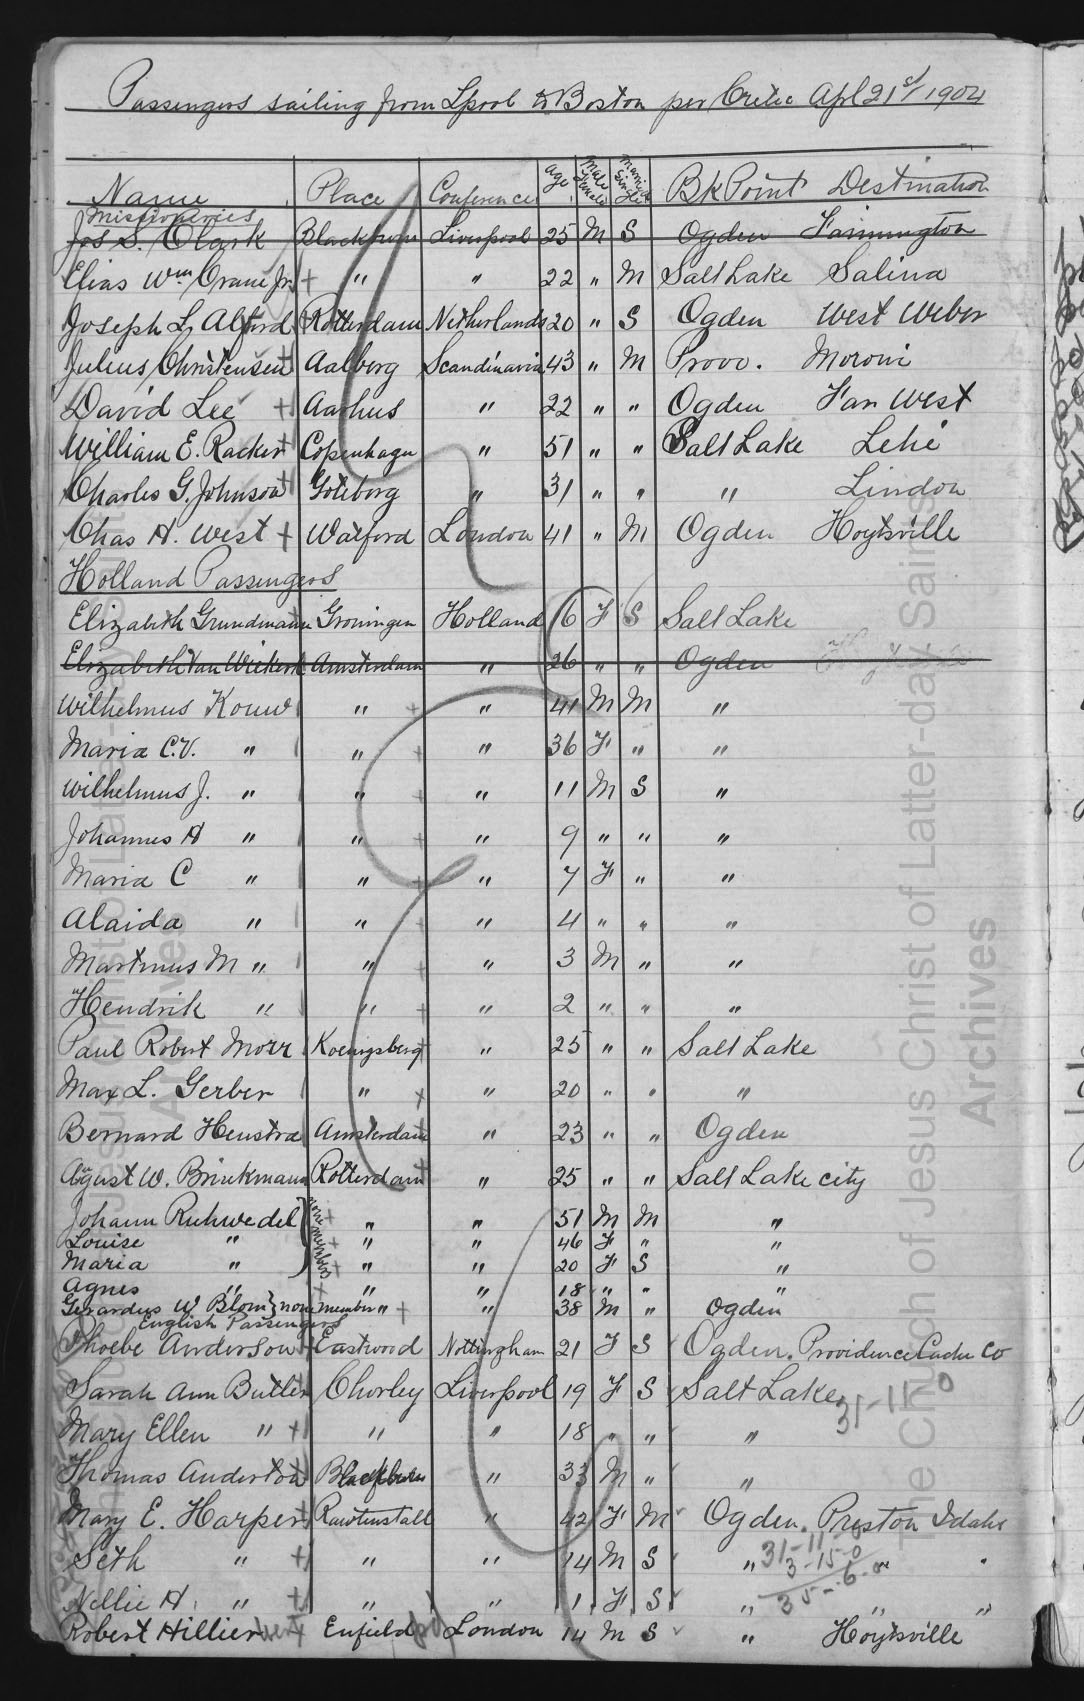 Passengers sailing from Lpool to Boston per Cretic Apl 21st/1904
Name Place Conference age Male Female Married Single Bk Point Destination
Missionaries
Jos S. Clark Blackburn Liverpool 25 M S Ogden Farmington
Elias Wm Crane Jr. + " " 22 " M Salt Lake Salina
Joseph L. Alford Rotterdam Netherlands 20 " S Ogden West Weber
Julius Christensen + Aalborg Scandinavia 43 " M Provo. Moroni
David Lee + Aarhus " 22 " " Ogden Far West
William E. Racker + Copenhagen " 51 " " Salt Lake Lehi
Charles G. Johnson + Goteborg " 31 " " " Lindon
Chas H. West + Watford London 41 " M Ogden Hoytsville
Holland Passengers
Elizabeth Grundmann Groningen Holland 6 F S Salt Lake
Elizabeth Van Amsterdam " 26 " " Ogden
Wilhelmus Kouw " + " 41 M M "
Maria C.V. " " + " 36 F " "
Wilhelmus J. " " + " 11 M S "
Johannes H " " + " 9 " " "
Maria C " " + " 7 F " "
Alaida " " + " 4 " " "
Martinus M " " + " 3 M " "
Hendrik " " + " 2 " " "
Paul Robert Morr Koenigsberg + " 25 " " Salt Lake
Max L. Gerber " + " 20 " " "
Bernard Henstra Amsterdam " 23 " " Ogden
August W. Brinkmann Rotterdam + " 25 " " Salt Lake city
Johann Ruhwedel } none members + " " 51 M M "
Louise " + " " 46 F " "
Maria " + " " 20 F S "
Agnes " + " " 18 " " "
Gerardus W Blom } none member " + " 38 M " Ogden
English Passengers
Phoebe Anderson + Eastwood Nottingham 21 F S Ogden. Providence Cache Co
Sarah Ann Butler Chorley Liverpool 19 F S Salt Lake
31-11-0
Mary Ellen " + " " 18 " " "
Thomas Anderton Blackburn " 33 M " "
Mary E. Harper + Rawtenstall " 42 F M Ogden. Preston Idaho
31-11-0
Seth " + " " 14 M S " " "
3-15-0
Nellie H. " + " " 1 F S " " "
35-6-0
Robert Hillier + Enfield London 14 M S " Hoytsville
The Church of Jesus Christ of Latter-day Saints
Archives